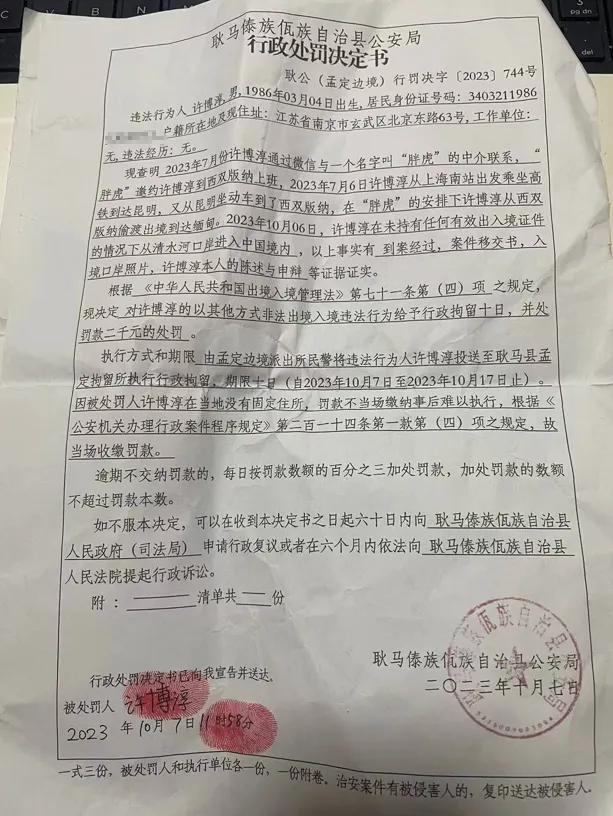 耿马傣族佤族自治县公安局
行政处罚决定书
耿公（孟定边境）行罚决字〔2023〕744号
违法行为人 许博淳,男,1986年03月04日出生,居民身份证号码：3403211986
户籍所在地及现住址：江苏省南京市玄武区北京东路63号,工作单位：
无,违法经历：无。
现查明 2023年7月份许博淳通过微信与一个名字叫“胖虎”的中介联系，“
胖虎”邀约许博淳到西双版纳上班，2023年7月6日许博淳从上海南站出发乘坐高
铁到达昆明，又从昆明坐动车到了西双版纳，在“胖虎”的安排下许博淳从西双
版纳偷渡出境到达缅甸。2023年10月06日，许博淳在未持有任何有效出入境证件
的情况下从清水河口岸进入中国境内，以上事实有 到案经过，案件移交书，入
境口岸照片，许博淳本人的陈述与申辩 等证据证实。
根据 《中华人民共和国出境入境管理法》第七十一条第（四）项 之规定，
现决定 对许博淳的以其他方式非法出境入境违法行为给予行政拘留十日，并处
罚款二千元的处罚 。
执行方式和期限 由孟定边境派出所民警将违法行为人许博淳投送至耿马县孟
定拘留所执行行政拘留，期限十日（自2023年10月7日至2023年10月17日止）。
因被处罚人许博淳在当地没有固定住所，罚款不当场缴纳事后难以执行，根据《
公安机关办理行政案件程序规定》第二百一十四条第一款第（四）项之规定，故
当场收缴罚款。
逾期不交纳罚款的，每日按罚款数额的百分之三加处罚款，加处罚款的数额
不超过罚款本数。
如不服本决定，可以在收到本决定书之日起六十日内向 耿马傣族佤族自治县
人民政府（司法局） 申请行政复议或者在六个月内依法向 耿马傣族佤族自治县
人民法院提起行政诉讼。
附： 清单共 份
耿马傣族佤族自治县公安局
二〇二三年十月七日
行政处罚决定书已向我宣告并送达。
被处罚人 许博淳
2023 年 10 月 7 日 11时58分
一式三份，被处罚人和执行单位各一份，一份附卷。治安案件有被侵害人的，复印送达被侵害人。